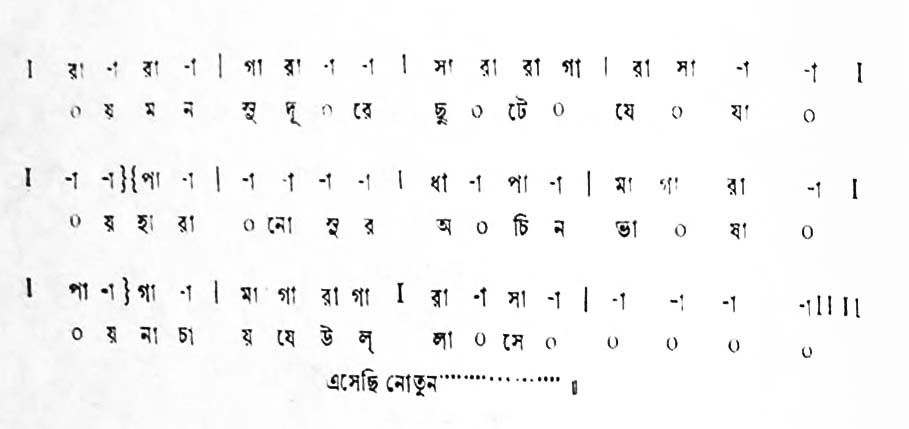 I রা -া রা -া | গা রা -া -া I সা রা রা গা | রা সা -া -া I
০ য় ম ন সু দূ ০ রে ছু ০ টে ০ যে ০ যা ০
I -া -া}{পা -া | -া -া -া -া I ধা -া পা -া | মা গা রা -া I
০ য় হা রা ০ নো সু র অ ০ চি ন ভা ০ ষা ০
I পা -া}গা -া | মা গা রা গা I রা -া সা -া | -া -া -া -া II II
০ য় না চা য় যে উ ল্ লা ০ সে ০ ০ ০ ০ ০
এসেছি নোতুন.................. ॥